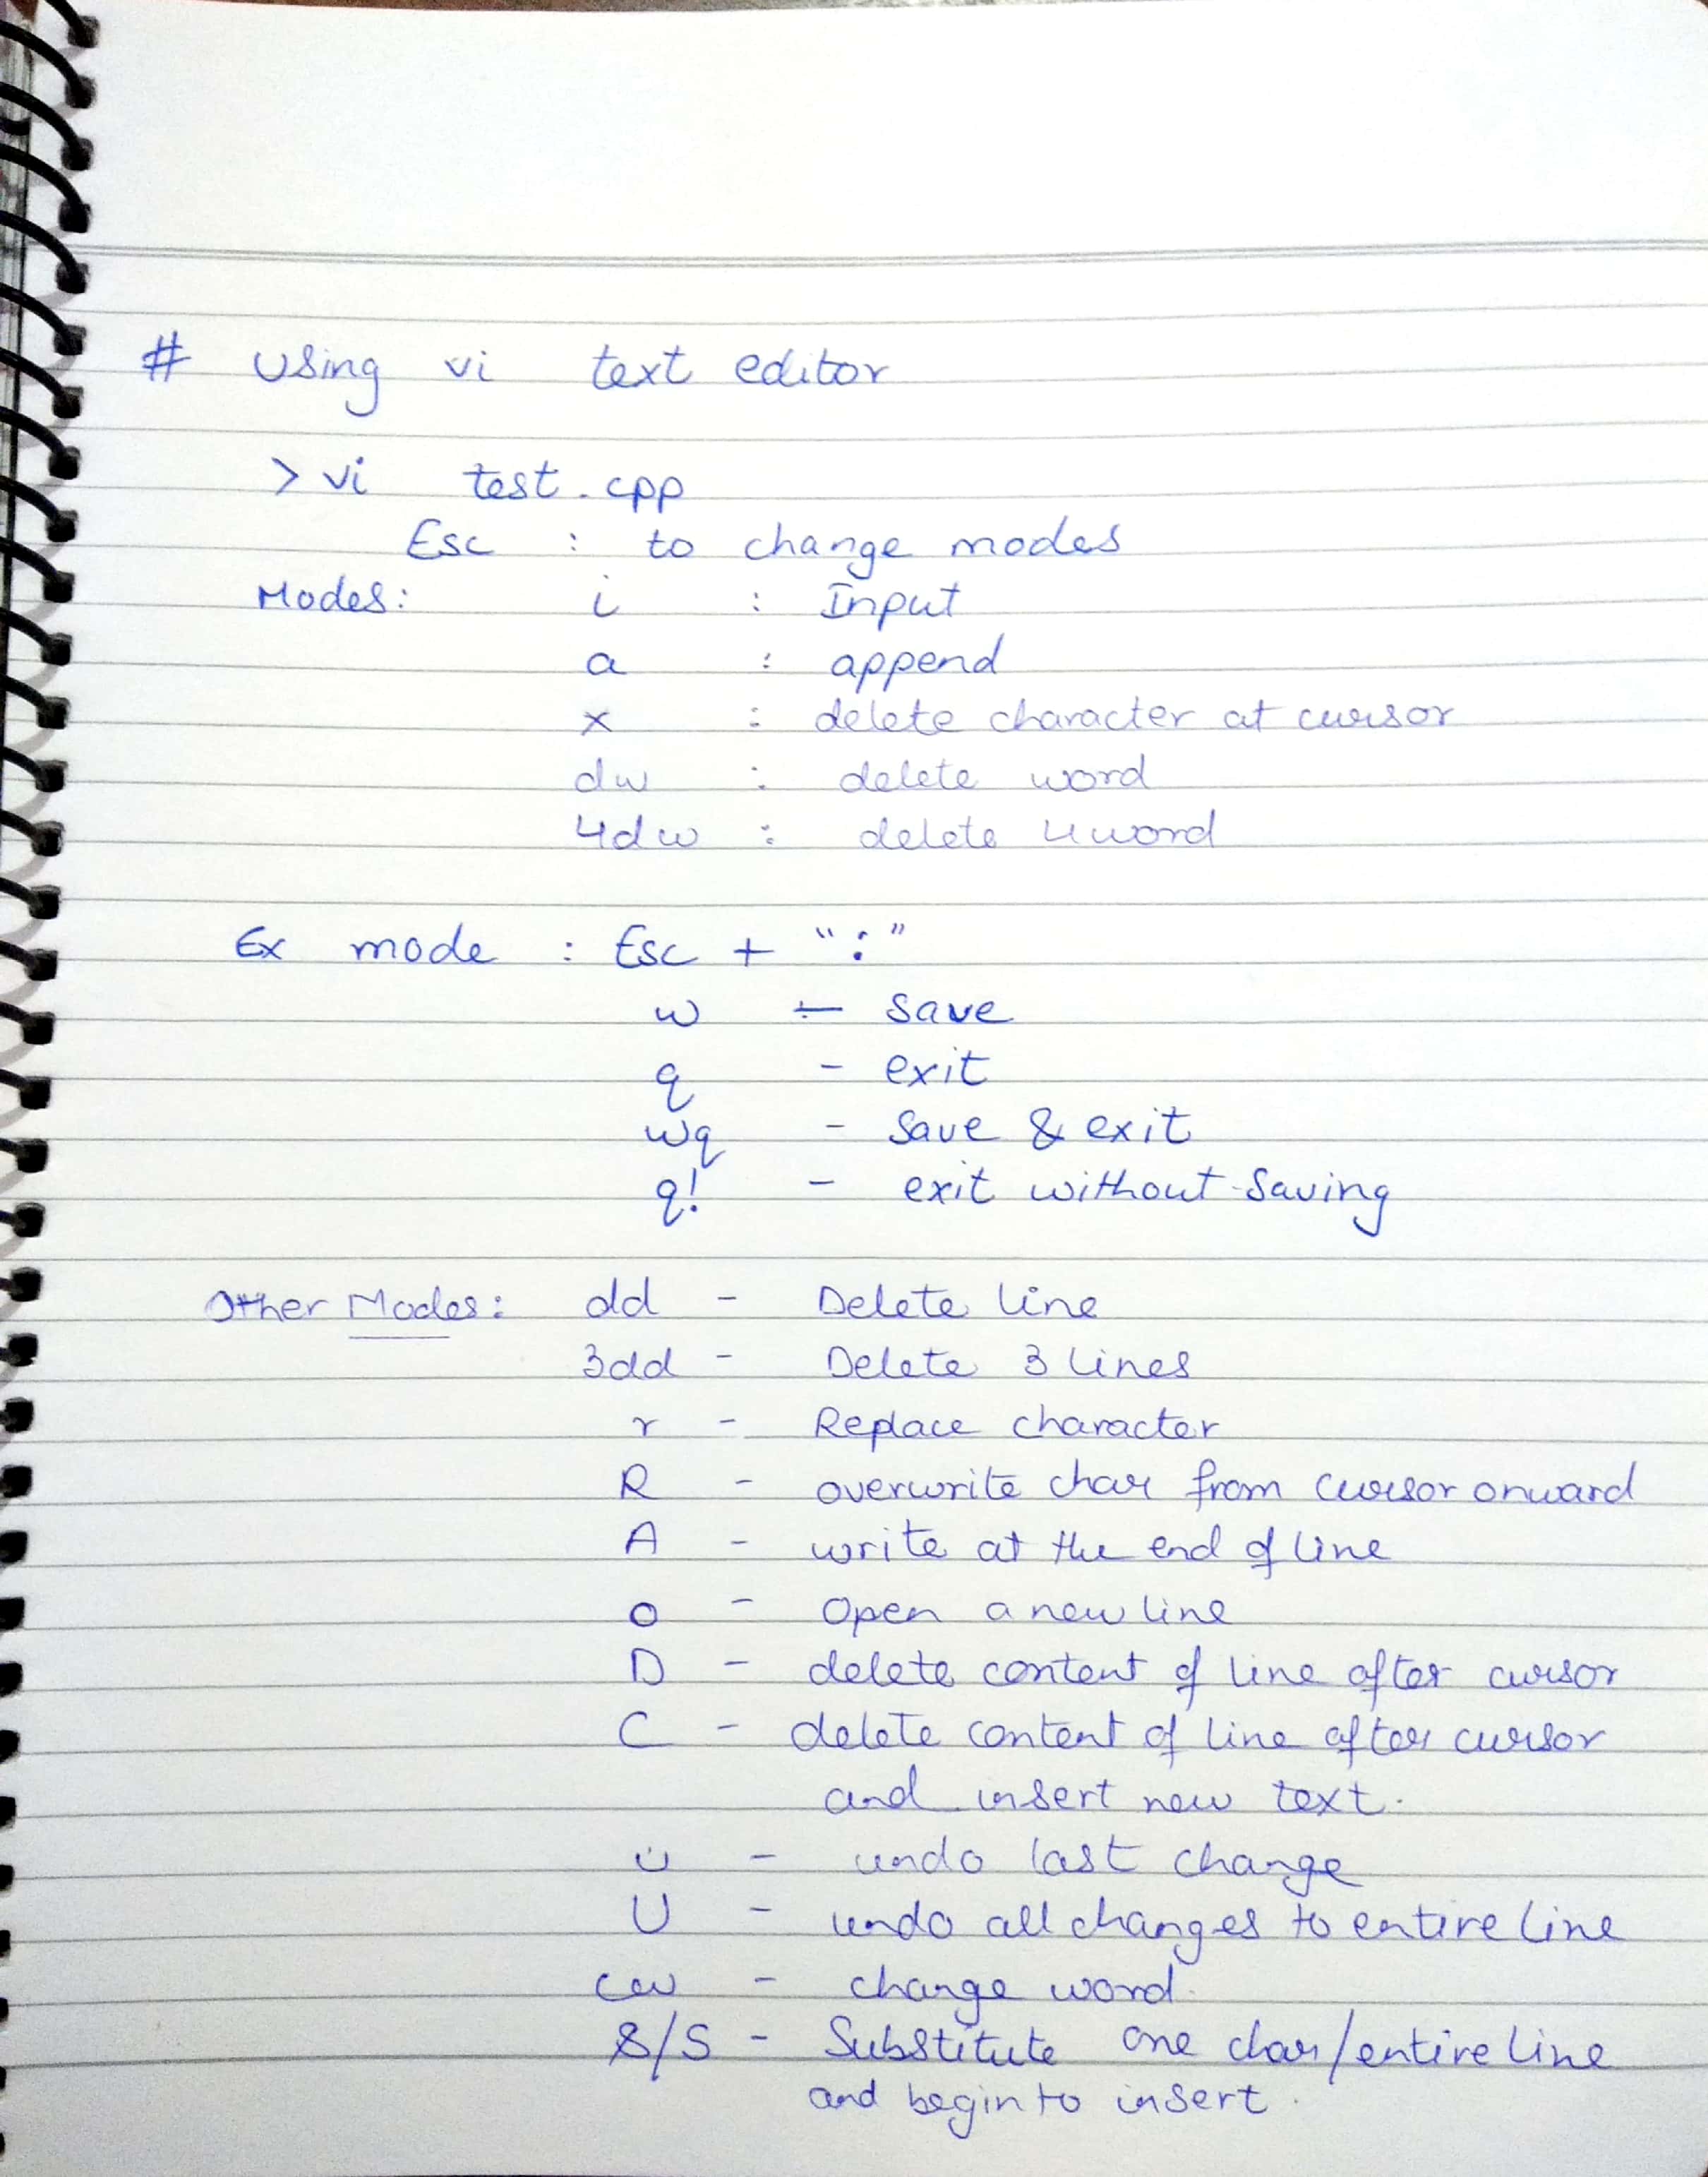 # Using vi text editor
> vi test.cpp
Esc : to change modes
Modes: i : Input
a : append
x : delete character at cursor
dw : delete word
4dw : delete 4 word
Ex mode : Esc + ":"
w - save
q - exit
wq - save & exit
q! - exit without saving
Other Modes: dd - Delete line
3dd - Delete 3 lines
r - Replace character
R - overwrite char from cursor onward
A - write at the end of line
o - Open a new line
D - delete content of line after cursor
C - delete content of line after cursor
and insert new text.
u - undo last change
U - undo all changes to entire line
cw - change word.
s/S - Substitute one char/entire line
and begin to insert.